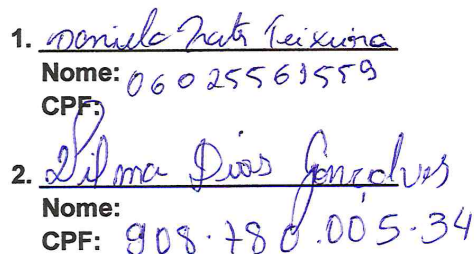 1. Daniela Prats Teixeira
Nome: 06025561559
CPF:
2. Dilma Dias Gonçalves
Nome:
CPF: 908.780.005-34